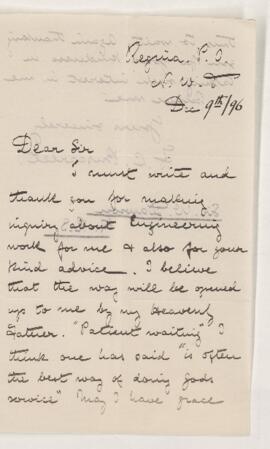 Regina P. O
N. W. T
Dec 9th/96
Dear Sir
I must write and
thank you for making
inquiry about Engineering
work for me & also for your
kind advice. I believe
that the way will be opened
up to me by my Heavenly
Father. "Patient waiting" I
think one has said "is often
the best way of doing Gods
service" May I have grace